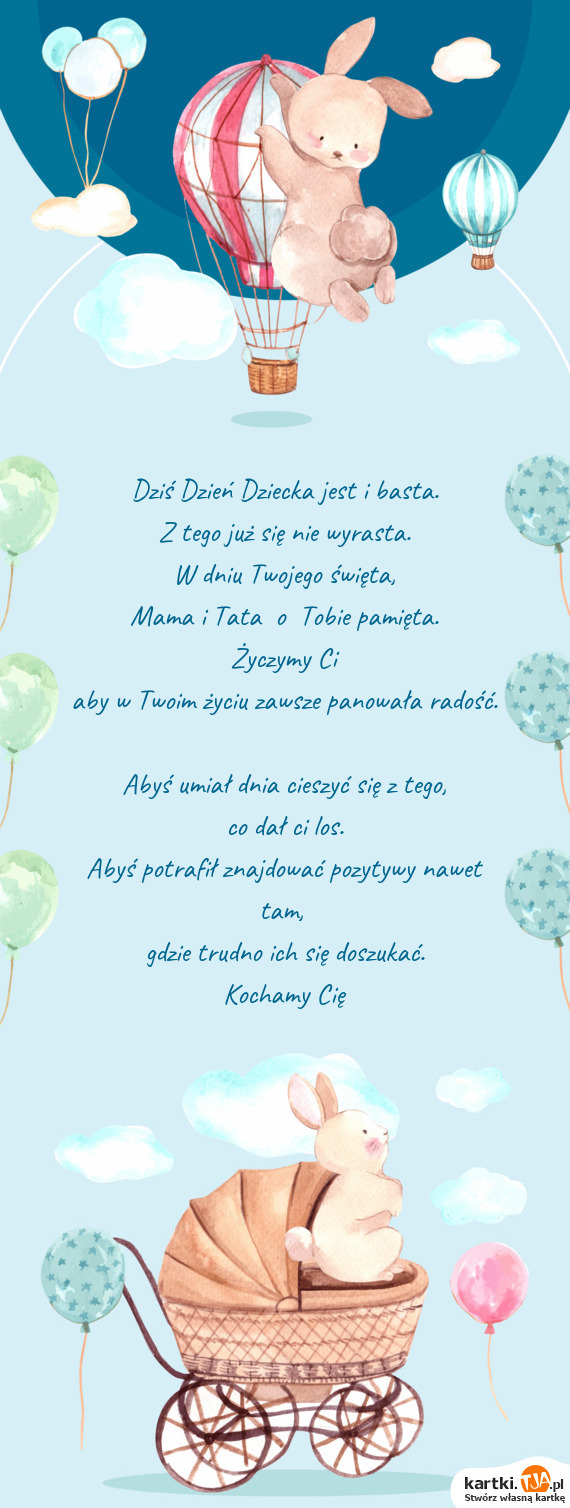 Dziś Dzień Dziecka jest i basta.
Z tego już się nie wyrasta.
W dniu Twojego święta,
Mama i Tata  o  Tobie pamięta.
Życzymy Ci
aby w Twoim życiu zawsze panowała radość.
Abyś umiał dnia cieszyć się z tego,
co dał ci los.
Abyś potrafił znajdować pozytywy nawet
tam,
gdzie trudno ich się doszukać.
Kochamy Cię
kartki.TJA.pl
Stwórz własną kartkę